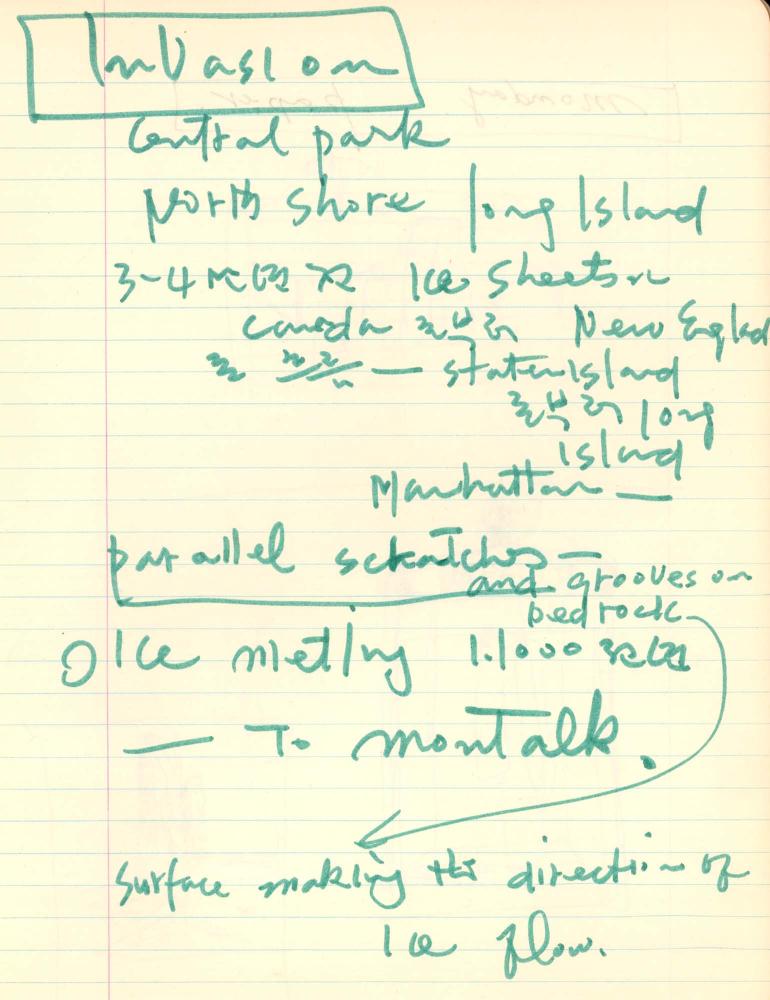 Invasion
Central park
North Shore long Island
3-4 Ice Sheets
Canada 로부터 New Englad
를 — staten island
로부터 long
island
Manhattan —
parallel sckatches —
and grooves on
bedrock
Ice metlng 1.1000
— To monTalk.
Surface making the direction of
Ice flow.